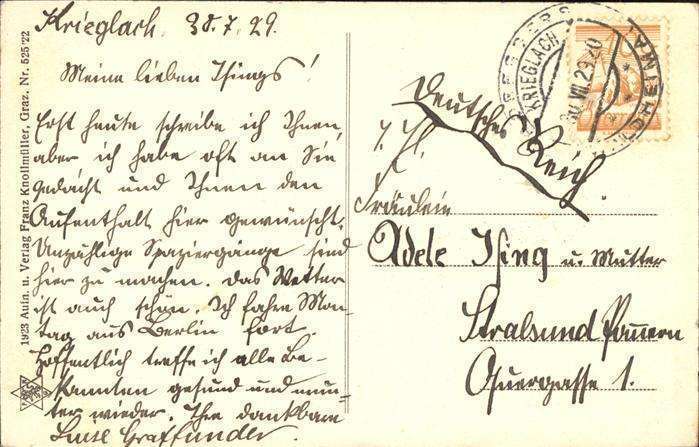 Krieglach, 30.7.29.
Meine lieben Ihings!
Erst heute schreibe ich Ihnen,
aber ich habe oft an Sie
gedacht und Ihnen den
Aufenthalt hier gewünscht.
Unzählige Spaziergänge sind
hier zu machen. Das Wetter
ist auch schön. Ich fahre Mon-
tag aus Berlin fort.
Hoffentlich treffe ich alle Be-
kannten gesund und mun-
ter wieder. Ihre dankbare
Luise Graffunder.
1923 Aufn. u. Verlag Franz Knollmüller, Graz. Nr. 525 '22
KRIEGLACH
30.VII.29.20
Deutsches Reich
Fräulein
Adele Ihing u. Mutter
Stralsund Pomern
Quergasse 1.